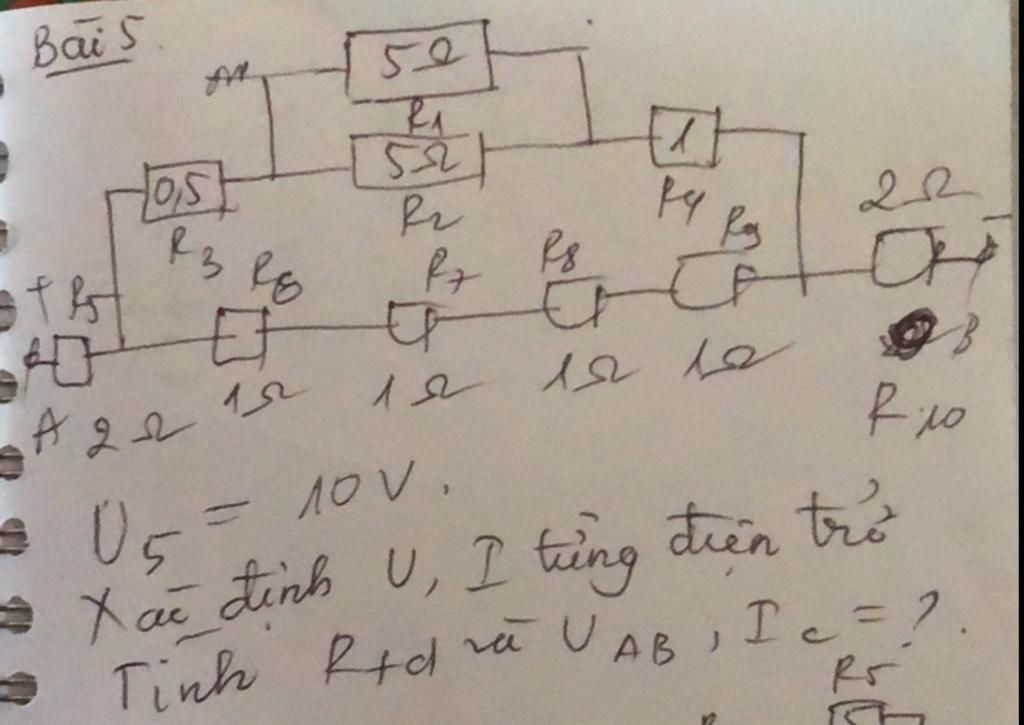 Bài 5.
5Ω
R1
5Ω
R2
0,5
R3
1
R4
2Ω
-
R6
R7
R8
R9
+ R5
B
1Ω 1Ω 1Ω 1Ω
A 2Ω
R10
U5 = 10V.
Xác định U, I từng điện trở
Tính Rtd và UAB, Ic = ?.
R5
5